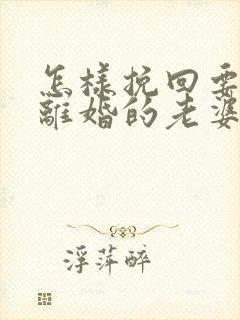 怎樣挽回要
離婚的老婆
浮萍醉